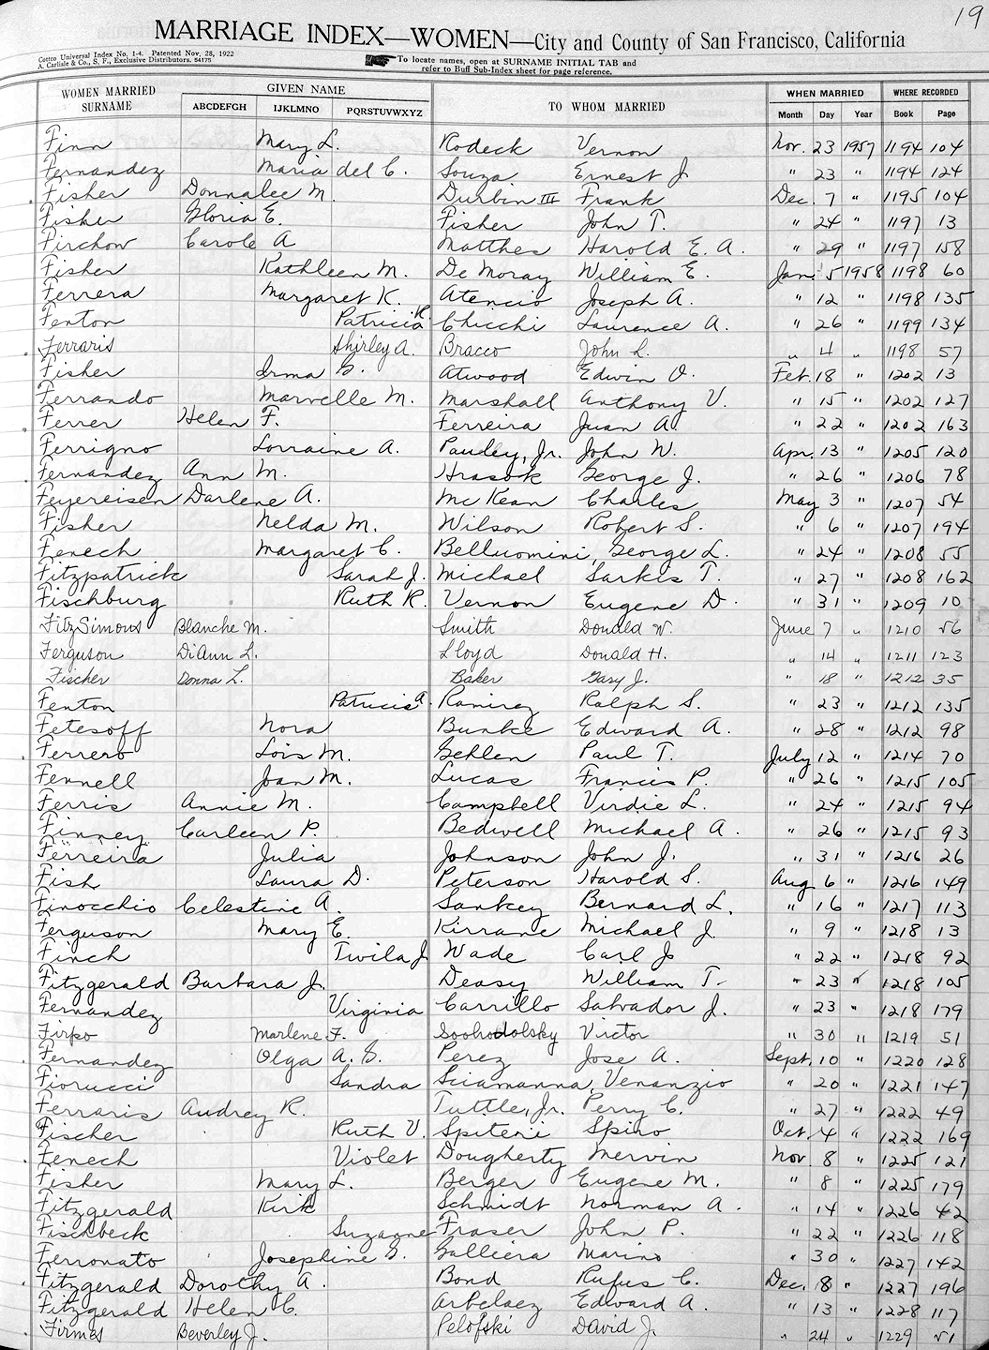 19
MARRIAGE INDEX—WOMEN—City and County of San Francisco, California
Cottco Universal Index No. 1-4. Patented Nov. 28, 1922
A. Carlisle & Co., S. F., Exclusive Distributors. 54175
To locate names, open at SURNAME INITIAL TAB and
refer to Buff Sub-Index sheet for page reference.
WOMEN MARRIED SURNAME GIVEN NAME TO WHOM MARRIED WHEN MARRIED WHERE RECORDED
ABCDEFGH IJKLMNO PQRSTUVWXYZ Month Day Year Book Page
Finn Mary L. Rodeck Vernon Nov. 23 1957 1194 104
Fernandez Maria del C. Souza Ernest J. " 23 " 1194 124
Fisher Donnalee M. Durbin III Frank Dec. 7 " 1195 104
Fisher Gloria E. Fisher John T. " 24 " 1197 13
Firchow Carole A Matthes Harold E. A. " 29 " 1197 158
Fisher Kathleen M. De Moray William E. Jan. 5 1958 1198 60
Ferrera Margaret K. Atencio Joseph A. " 12 " 1198 135
Fenton Patricia K. Chicchi Laurence A. " 26 " 1199 134
Ferraris Shirley A. Bracco John L. " 4 " 1198 57
Fisher Irma Atwood Edwin O. Feb. 18 " 1202 13
Ferrando Marvelle M. Marshall Anthony V. " 15 " 1202 127
Ferrer Helen F. Ferreira Juan A " 22 " 1202 163
Ferrigno Lorraine A. Jr. John W. Apr. 13 " 1205 120
Fernandez Ann M. George J. " 26 " 1206 78
Feyereisen Darlene A. McKean Charles May 3 " 1207 54
Fisher Nelda M. Wilson Robert S. " 6 " 1207 194
Fenech Margaret C. Belluomini, George L. " 24 " 1208 55
Fitzpatrick Sarah J. Michael Sarkis T. " 27 " 1208 162
Fischburg Ruth R. Vernon Eugene D. " 31 " 1209 10
FitzSimons Blanche M. Smith Donald W. June 7 " 1210 56
Ferguson DiAnn L. Lloyd Donald H. " 14 " 1211 123
Fischer Donna L. Baker Gary J. " 18 " 1212 35
Fenton Patricia A. Ramirez Ralph S. " 23 " 1212 135
Fetesoff Nora Bunke Edward A. " 28 " 1212 98
Ferrero Lois M. Gehlen Paul T. July 12 " 1214 70
Fennell Joan M. Lucas Francis P. " 26 " 1215 105
Ferris Annie M. Campbell Virdie L. " 24 " 1215 94
Finney Carleen P. Bedwell Michael A. " 26 " 1215 93
Ferreira Julia Johnson John J. " 31 " 1216 26
Fish Laura D. Peterson Harold S. Aug 6 " 1216 149
Finocchio Celestine A. Sankey Bernard L. " 16 " 1217 113
Ferguson Mary E. Kirrane Michael J. " 9 " 1218 13
Finch Twila J Wade Carl J " 22 " 1218 92
Fitzgerald Barbara J. Deasy William T. " 23 " 1218 105
Fernandez Virginia Carrillo Salvador J. " 23 " 1218 179
Firpo Marlene F. Soohodolsky Victor " 30 " 1219 51
Fernandez Olga A. G. Perez Jose A. Sept. 10 " 1220 128
Fiorucci Sandra Sciamanna, Venanzio " 20 " 1221 147
Ferraris Audrey R. Tuttle, Jr. Perry C. " 27 " 1222 49
Fischer Ruth V. Spiteri Spiro Oct. 4 " 1222 169
Fenech Violet Dougherty Mervin Nov. 8 " 1225 121
Fisher Mary L. Berger Eugene M. " 8 " 1225 179
Fitzgerald Kirk Schmidt Norman A. " 14 " 1226 42
Fischbeck Suzanne Fraser John P. " 22 " 1226 118
Ferronato Josephine G. Galliera Marino " 30 " 1227 142
Fitzgerald Dorothy A. Bond Rufus C. Dec. 8 " 1227 196
Fitzgerald Helen C. Arbelaez Edward A. " 13 " 1228 117
Firmes Beverley J. Pelofski David J. " 24 " 1229 51